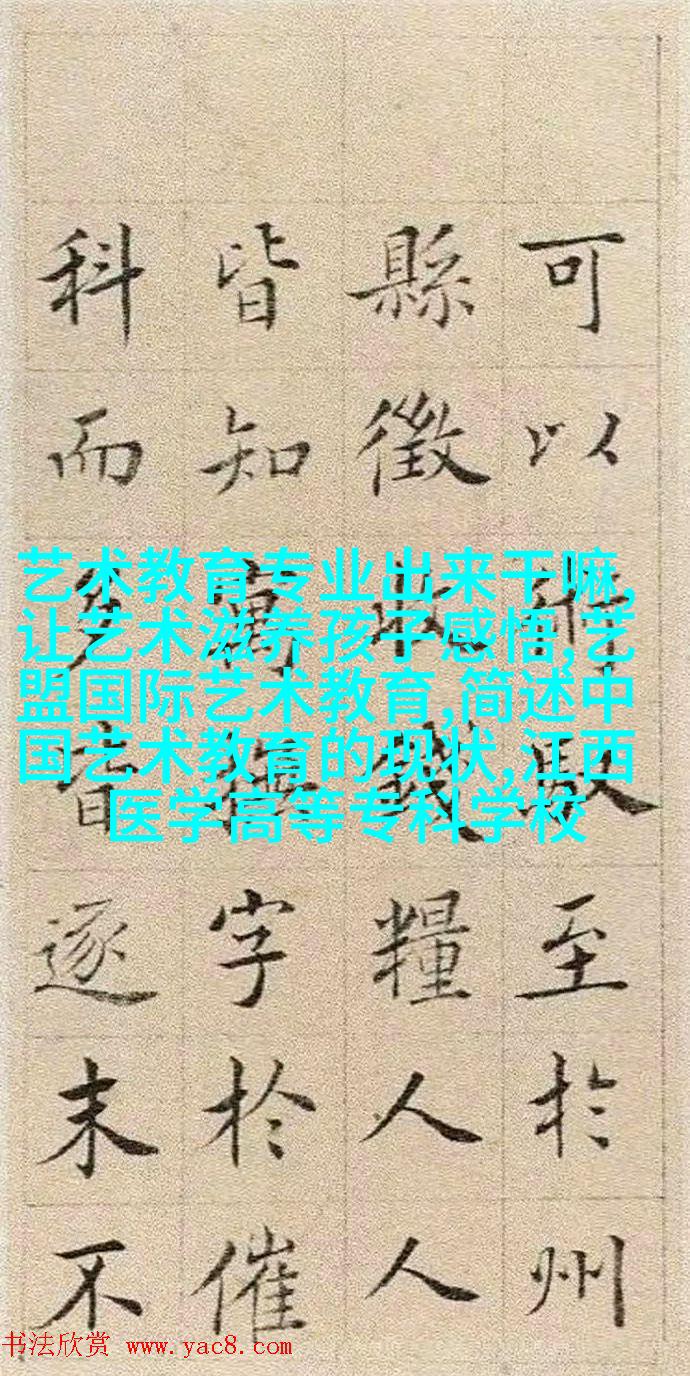 艺术教育专业出来干嘛,
让艺术滋养孩子感悟,艺
盟国际艺术教育,简述中
国艺术教育的现状,江西
医学高等专科学校
可以至於州
縣徵收錢糧人人
皆知寓撫字於催
科而逐末不
书法欣赏 www.yac8.com